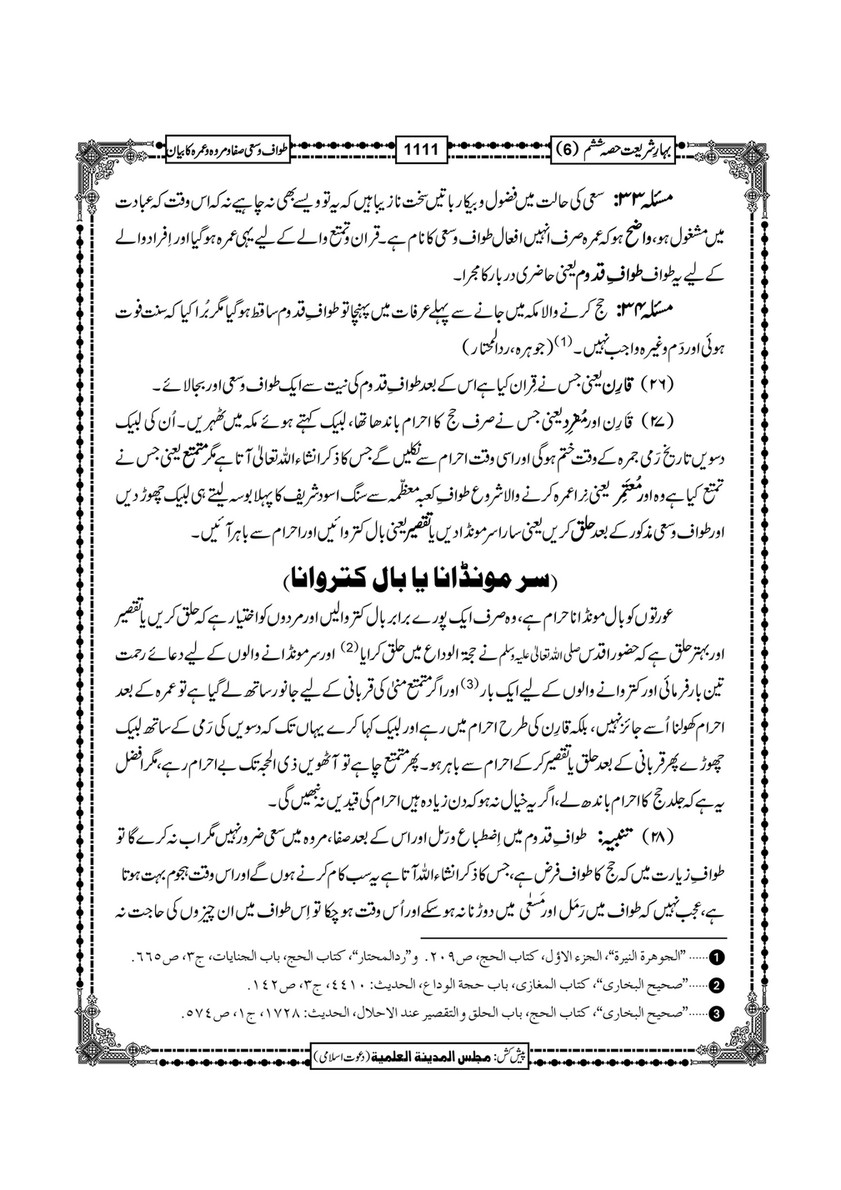 بہارِ شریعت حصہ ششم (6)
1111
طواف وسعی صفا و مروہ و عمرہ کا بیان
مسئلہ ۳۳: سعی کی حالت میں فضول و بیکار باتیں سخت نازیبا ہیں کہ یہ تو ویسے بھی نہ چاہیے نہ کہ اس وقت کہ عبادت
میں مشغول ہو، واضح ہو کہ عمرہ صرف انہیں افعال طواف وسعی کا نام ہے۔ قران و تمتع والے کے لیے یہی عمرہ ہوگیا اور اِفراد والے
کے لیے یہ طواف طوافِ قدوم یعنی حاضری دربار کا مجرا۔
مسئلہ ۳۴: حج کرنے والا مکہ میں جانے سے پہلے عرفات میں پہنچا تو طوافِ قدوم ساقط ہوگیا مگر بُرا کیا کہ سنت فوت
ہوئی اور دَم وغیرہ واجب نہیں۔ (1) (جوہرہ، ردالمحتار)
(۲۶) قارِن یعنی جس نے قِران کیا ہے اس کے بعد طوافِ قدوم کی نیت سے ایک طواف وسعی اور بجالائے۔
(۲۷) قارِن اور مُفرِد یعنی جس نے صرف حج کا احرام باندھا تھا، لبیک کہتے ہوئے مکہ میں ٹھہریں۔ اُن کی لبیک
دسویں تاریخ رَمی جمرہ کے وقت ختم ہوگی اور اسی وقت احرام سے نکلیں گے جس کا ذکر انشاء اللہ تعالیٰ آتا ہے مگر متمتع یعنی جس نے
تمتع کیا ہے وہ اور مُعتَمِر یعنی نِرا عمرہ کرنے والا شروع طوافِ کعبہ معظّمہ سے سنگ اسود شریف کا پہلا بوسہ لیتے ہی لبیک چھوڑ دیں
اور طواف وسعی مذکور کے بعد حلق کریں یعنی سارا سر مونڈا دیں یا تقصیر یعنی بال کتروائیں اور احرام سے باہر آئیں۔
(سر مونڈانا یا بال کتروانا)
عورتوں کو بال مونڈانا حرام ہے، وہ صرف ایک پورے برابر بال کتروالیں اور مردوں کو اختیار ہے کہ حلق کریں یا تقصیر
اور بہتر حلق ہے کہ حضور اقدس صلی اللہ تعالیٰ علیہ وسلم نے حجۃ الوداع میں حلق کرایا (2) اور سر مونڈانے والوں کے لیے دعائے رحمت
تین بار فرمائی اور کتروانے والوں کے لیے ایک بار (3) اور اگر متمتع منیٰ کی قربانی کے لیے جانور ساتھ لے گیا ہے تو عمرہ کے بعد
احرام کھولنا اُسے جائز نہیں، بلکہ قارِن کی طرح احرام میں رہے اور لبیک کہا کرے یہاں تک کہ دسویں کی رَمی کے ساتھ لبیک
چھوڑے پھر قربانی کے بعد حلق یا تقصیر کرکے احرام سے باہر ہو۔ پھر متمتع چاہے تو آٹھویں ذی الحجہ تک بے احرام رہے، مگر افضل
یہ ہے کہ جلد حج کا احرام باندھ لے، اگر یہ خیال نہ ہو کہ دن زیادہ ہیں احرام کی قیدیں نہ نبھیں گی۔
(۲۸) تنبیہ: طوافِ قدوم میں اِضطباع و رَمل اور اس کے بعد صفا، مروہ میں سعی ضرور نہیں مگر اب نہ کرے گا تو
طوافِ زیارت میں کہ حج کا طواف فرض ہے، جس کا ذکر انشاء اللہ آتا ہے یہ سب کام کرنے ہوں گے اور اس وقت ہجوم بہت ہوتا
ہے، عجب نہیں کہ طواف میں رَمَل اور مَسعٰی میں دوڑنا نہ ہوسکے اور اُس وقت ہوچکا تو اِس طواف میں ان چیزوں کی حاجت نہ
1 ...... "الجوهرة النيرة"، الجزء الاوّل، كتاب الحج، ص۲۰۹. و"ردالمحتار"، كتاب الحج، باب الجنايات، ج۳، ص۶۶۵.
2 ...... "صحيح البخارى"، كتاب المغازى، باب حجة الوداع، الحديث: ۴۴۱۰، ج۳، ص۱۴۲.
3 ...... "صحيح البخارى"، كتاب الحج، باب الحلق والتقصير عند الاحلال، الحديث: ۱۷۲۸، ج۱، ص۵۷۴.
پیش کش: مجلس المدینة العلمیة (دعوت اسلامی)